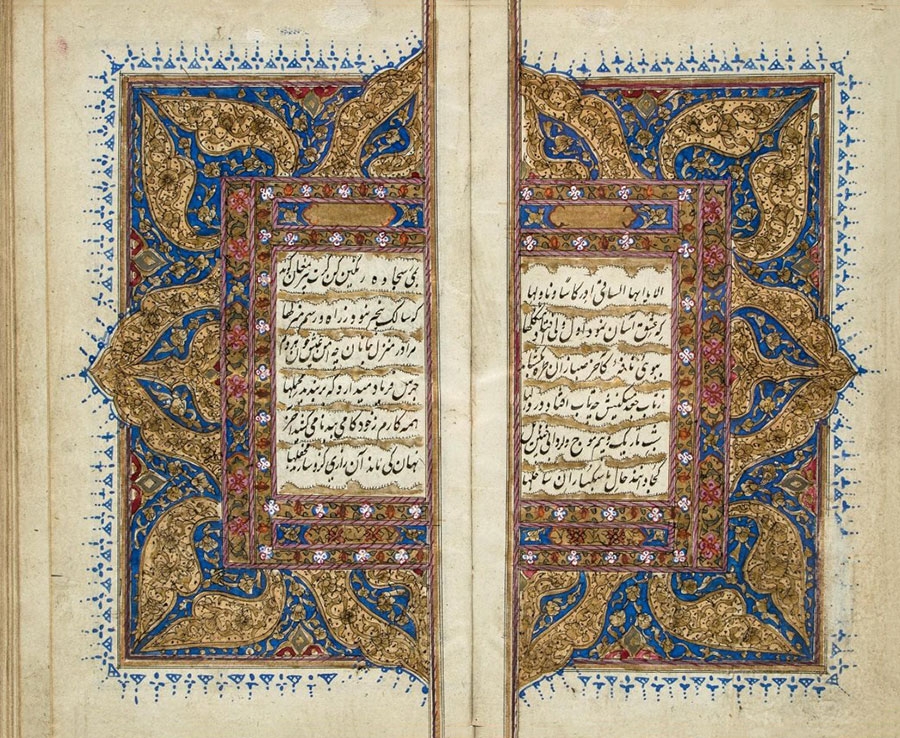 الا یا ایها الساقی ادر کاسا و ناولها
که عشق آسان نمود اول ولی افتاد مشکلها
ببوی نافه کاخر صبا زان طره بگشاید
ز تاب جعد مشکینش چه تاب افتاد در دلها
شب تاریک و بیم موج و
کجا دانند حال ما سبکساران ساحلها
بمی سجاده رنگین کن گرت پیر مغان گوید
که سالک بیخبر نبود ز راه و رسم منزلها
مرا در منزل جانان چه امن عیش چون هر دم
جرس فریاد میدارد که بربندید محملها
همه کارم ز خود کامی به بدنامی کشید آخر
نهان کی ماند آن رازی کزو سازند محفلها